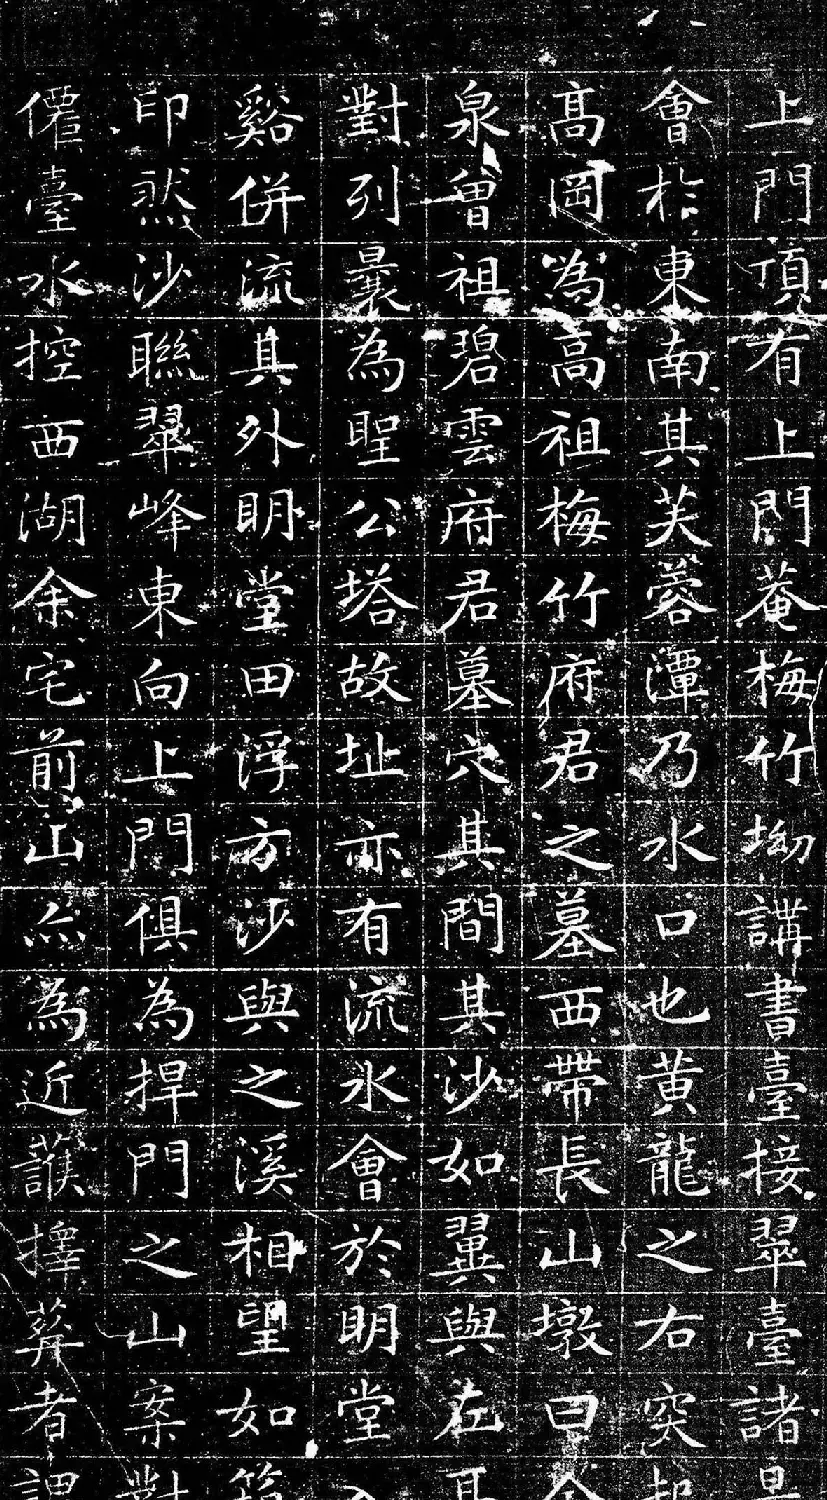 上門頂有上閂菴梅竹坳講書臺接翠臺諸
會於東南其芙蓉潭乃水口也黄龍之右突起
高岡為高祖梅竹府君之墓西帶長山墩曰金
泉曾祖碧雲府君墓穴其間其沙如翼與在
對列曩為聖公塔故址亦有流水會於明堂
谿併流其外明堂田浮方沙與之溪相望如
印然沙聯翠峰東向上門俱為捍門之山案對
僊臺水控西湖余宅前山亦為近護擇葬者謂